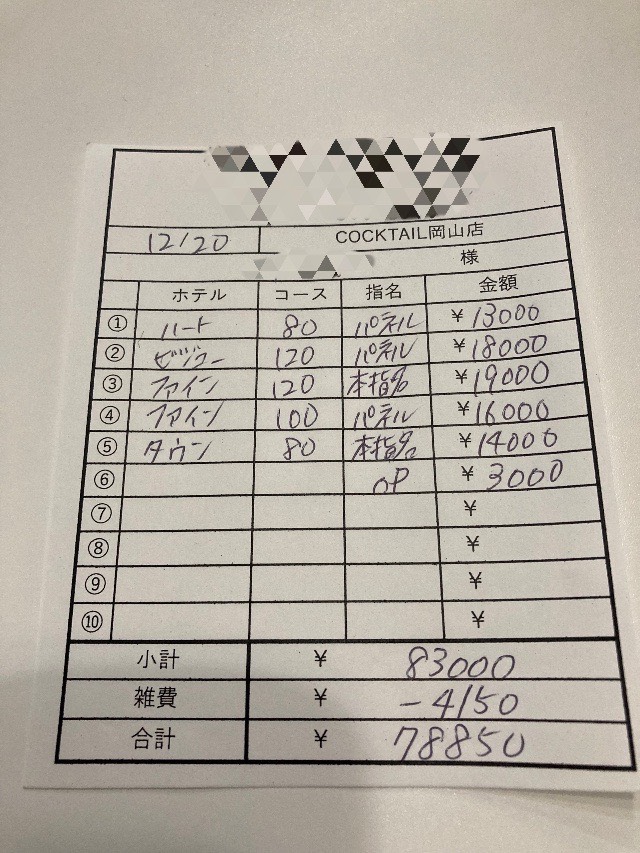 12/20 COCKTAIL岡山店
様
ホテル コース 指名 金額
① ハート 80 パネル ¥13000
② ビジュー 120 パネル ¥18000
③ ファイン 120 本指名 ¥19000
④ ファイン 100 パネル ¥16000
⑤ タウン 80 本指名 ¥14000
⑥ OP ¥3000
⑦ ¥
⑧ ¥
⑨ ¥
⑩ ¥
小計 ¥ 83000
雑費 ¥ -4150
合計 ¥ 78850